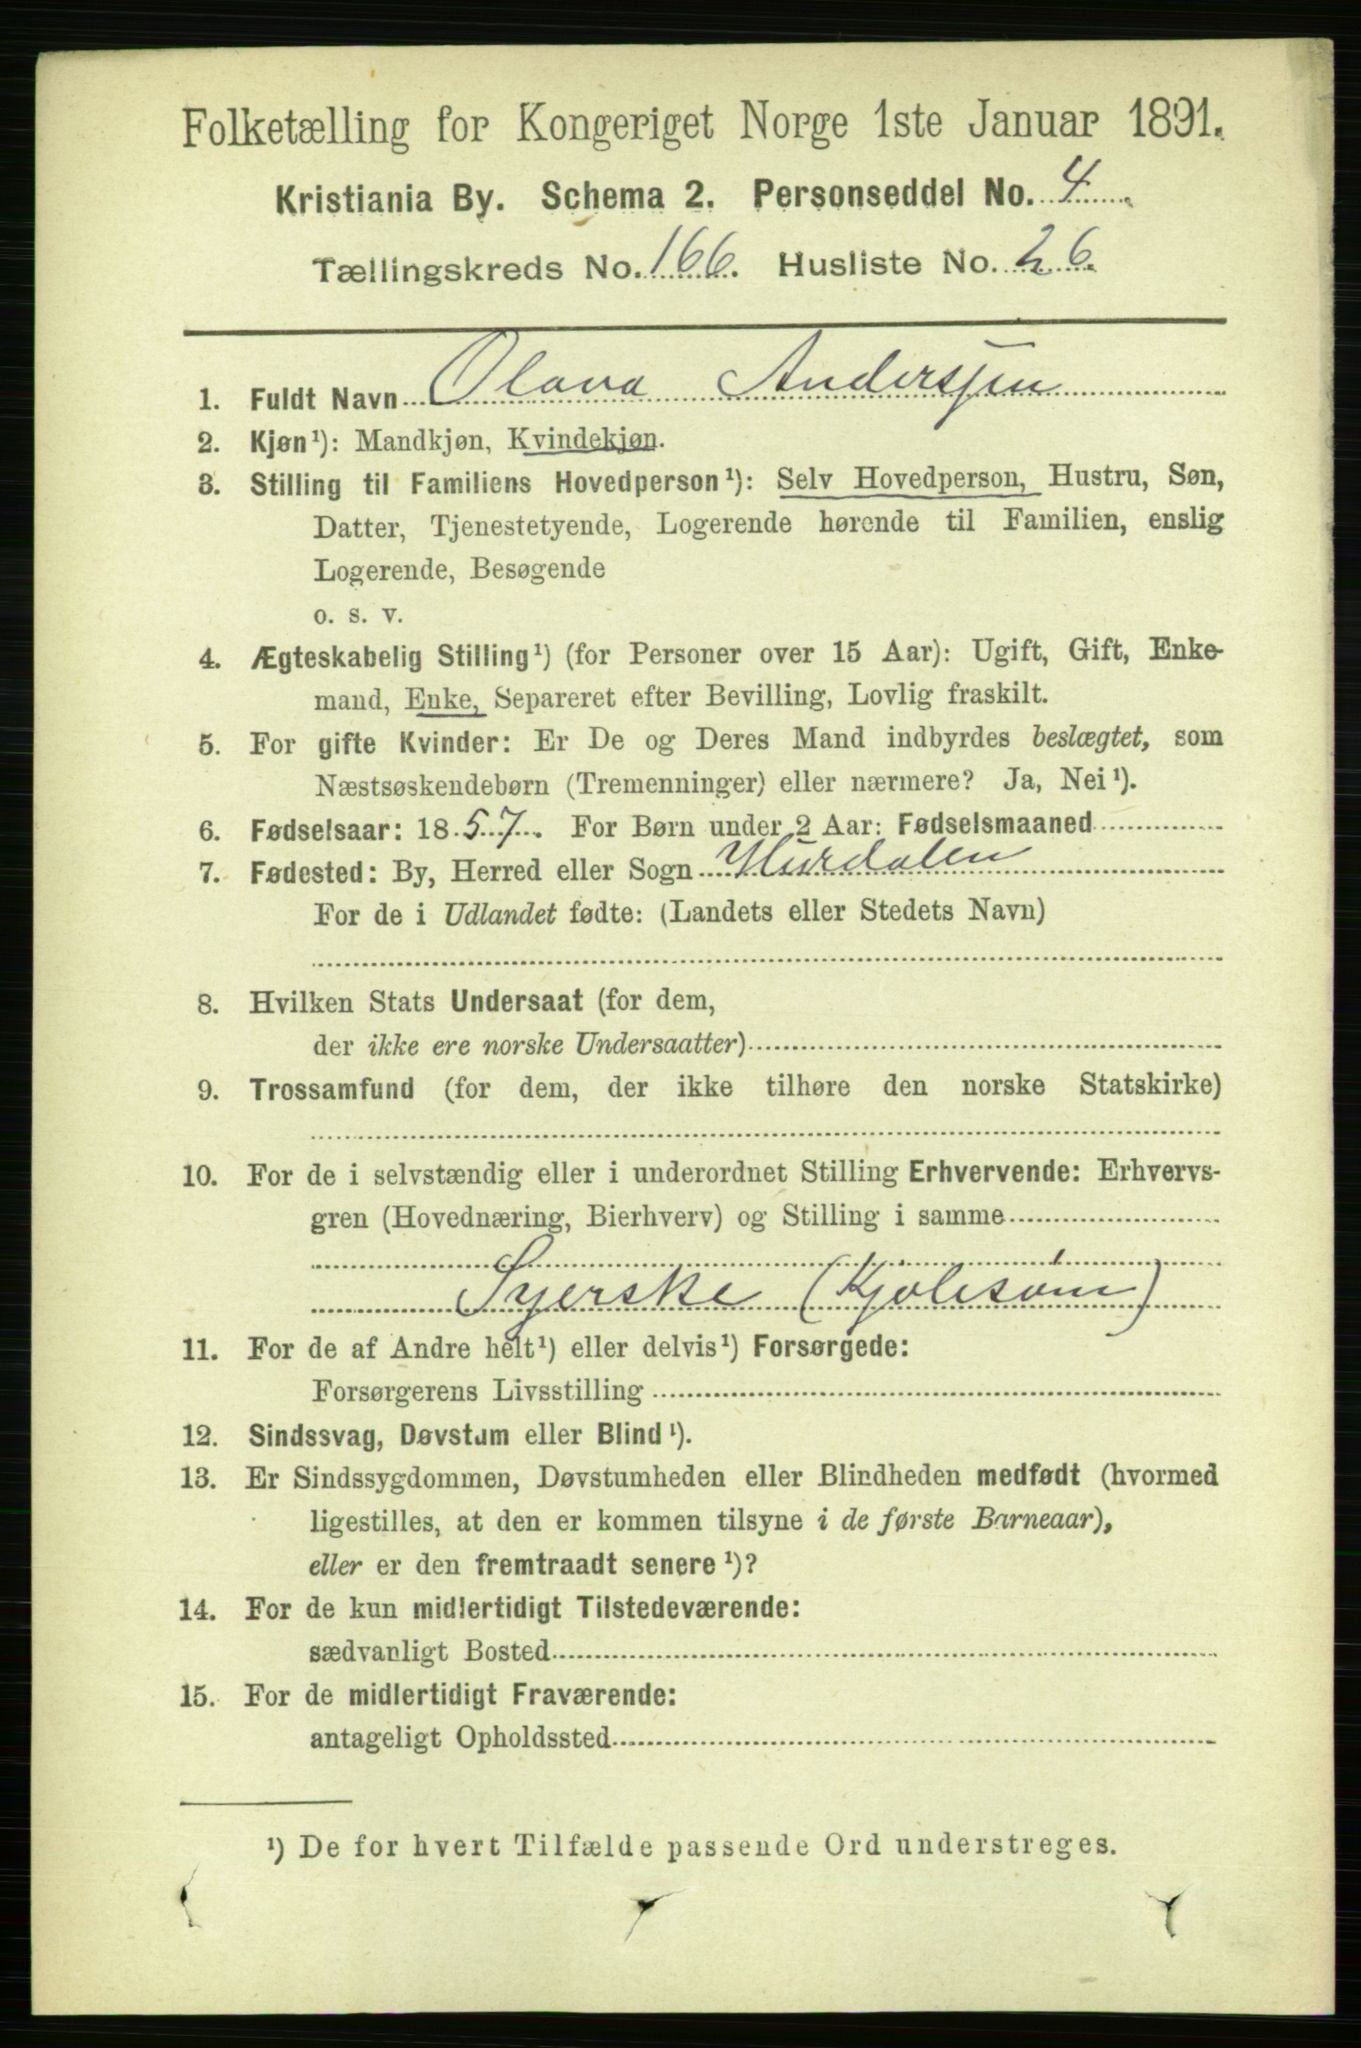 Folketælling for Kongeriget Norge 1ste Januar 1891.
Kristiania By. Schema 2. Personseddel No. 4
Tællingskreds No. 166. Husliste No. 26.
1. Fuldt Navn Olava Andersjen
2. Kjøn¹): Mandkjøn, Kvindekjøn.
3. Stilling til Familiens Hovedperson¹): Selv Hovedperson, Hustru, Søn,
Datter, Tjenestetyende, Logerende hørende til Familien, enslig
Logerende, Besøgende
o. s. v.
4. Ægteskabelig Stilling¹) (for Personer over 15 Aar): Ugift, Gift, Enke-
mand, Enke, Separeret efter Bevilling, Lovlig fraskilt.
5. For gifte Kvinder: Er De og Deres Mand indbyrdes beslægtet, som
Næstsøskendebørn (Tremenninger) eller nærmere? Ja, Nei¹).
6. Fødselsaar: 1857. For Børn under 2 Aar: Fødselsmaaned
7. Fødested: By, Herred eller Sogn Hurdalen
For de i Udlandet fødte: (Landets eller Stedets Navn)
8. Hvilken Stats Undersaat (for dem,
der ikke ere norske Undersaatter)
9. Trossamfund (for dem, der ikke tilhøre den norske Statskirke)
10. For de i selvstændig eller i underordnet Stilling Erhvervende: Erhvervs-
gren (Hovednæring, Bierhverv) og Stilling i samme
Syerske (Kjolesøm)
11. For de af Andre helt¹) eller delvis¹) Forsørgede:
Forsørgerens Livsstilling
12. Sindssvag, Døvstum eller Blind¹).
13. Er Sindssygdommen, Døvstumheden eller Blindheden medfødt (hvormed
ligestilles, at den er kommen tilsyne i de første Barneaar),
eller er den fremtraadt senere¹)?
14. For de kun midlertidigt Tilstedeværende:
sædvanligt Bosted
15. For de midlertidigt Fraværende:
antageligt Opholdssted
¹) De for hvert Tilfælde passende Ord understreges.